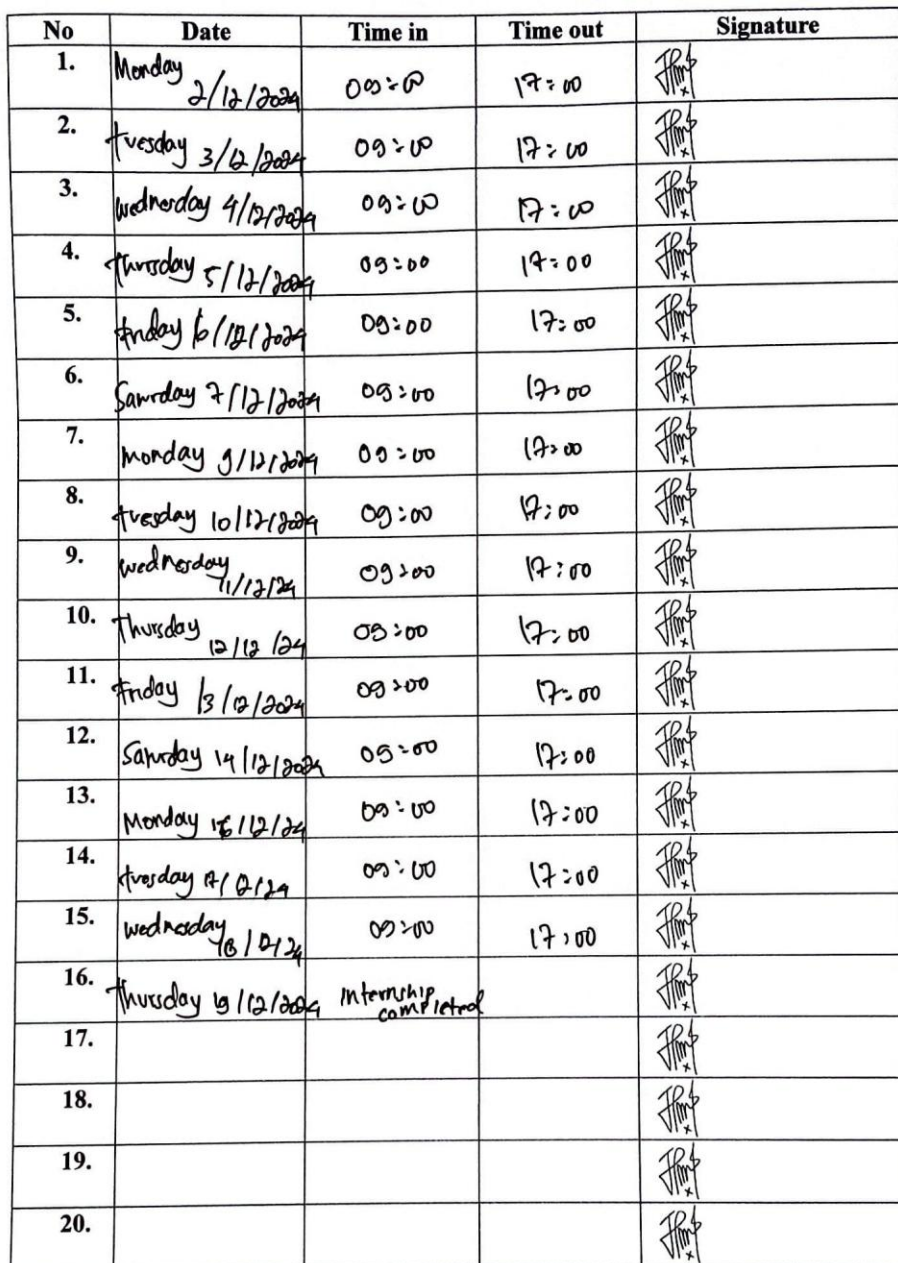 No Date Time in Time out Signature
1. Monday 2/12/2024 09:00 17:00
2. tuesday 3/12/2024 09:00 17:00
3. wednesday 4/12/2024 09:00 17:00
4. thursday 5/12/2024 09:00 17:00
5. friday 6/12/2024 09:00 17:00
6. Saturday 7/12/2024 09:00 17:00
7. monday 9/12/2024 09:00 17:00
8. tuesday 10/12/2024 09:00 17:00
9. wednesday 11/12/24 09:00 17:00
10. Thursday 12/12/24 09:00 17:00
11. friday 13/12/2024 09:00 17:00
12. Saturday 14/12/2024 09:00 17:00
13. Monday 16/12/24 09:00 17:00
14. tuesday 17/12/24 09:00 17:00
15. wednesday 18/12/24 09:00 17:00
16. thursday 19/12/2024 internship completed
17.
18.
19.
20.